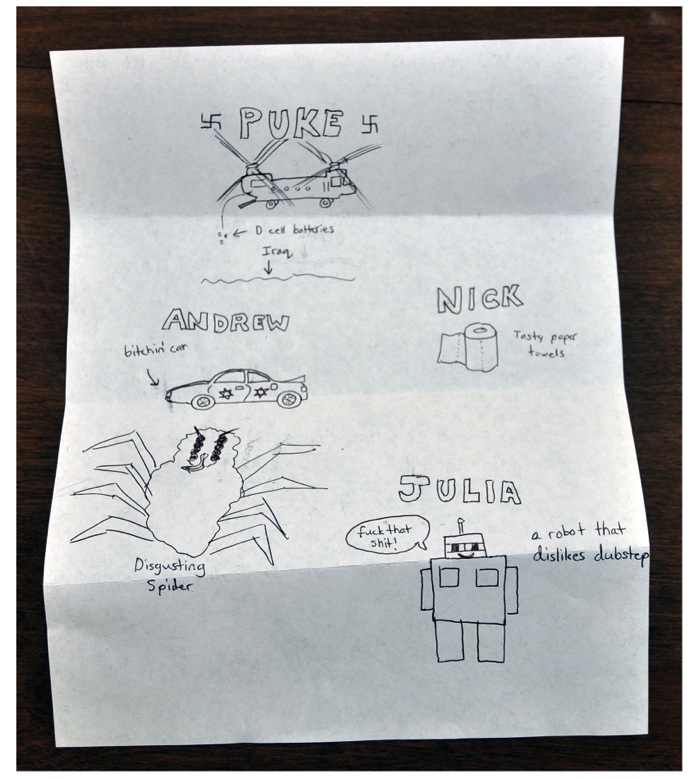 PUKE
D cell batteries
Iraq
NICK
Tasty paper
towels
ANDREW
bitchin' car
JULIA
fuck that
shit!
a robot that
dislikes dubstep
Disgusting
Spider